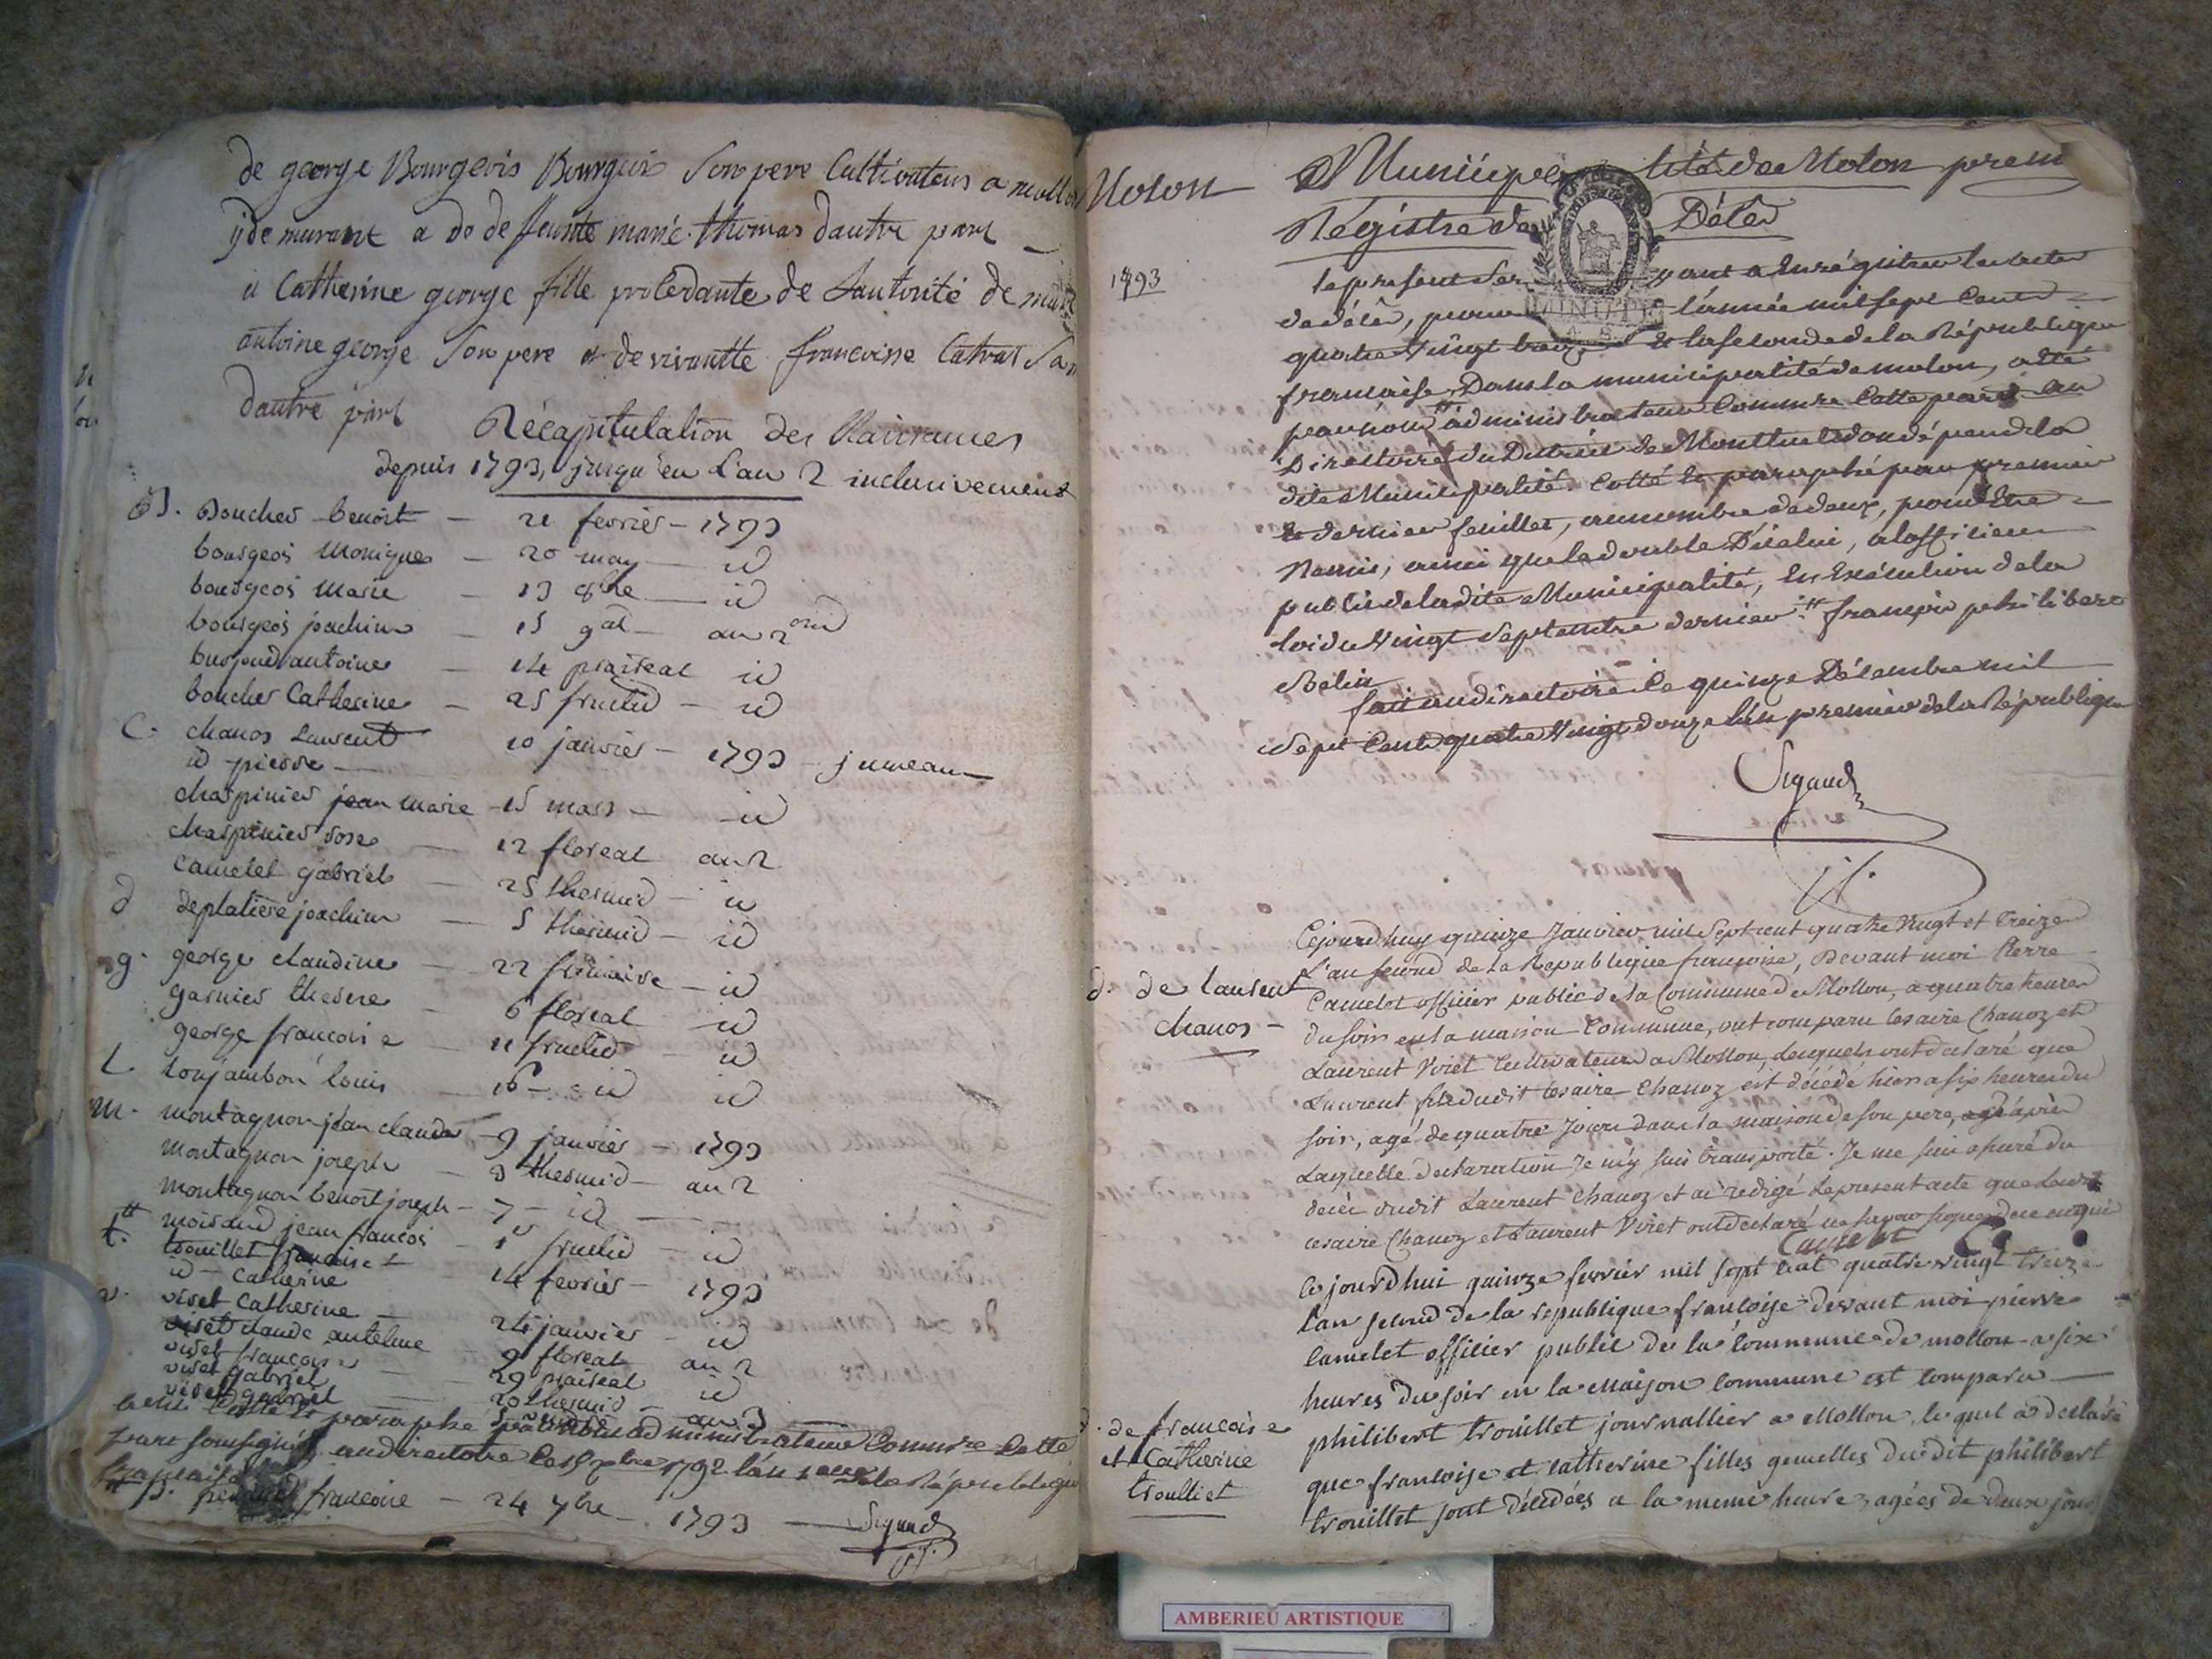 de george Bourgeois Bourgeois Son pere Cultivateur a mollon
y demurant a de deffeunte marie thomas dautre part
a Catherine george fille procedante de Lautorité de marc
antoine george Son pere et de vivantte francoisse
dautre part
Récapitulation des Naissances
depuis 1793, jusqu'en L'an 2 inclusivement
B. Boucher Benoit — 21 fevrier — 1793
bourgeois Monique — 20 may — id
bourgeois Marie — 13 8bre — id
bourgeois joachim — 15 — an 2
antoine — 14 prairéal id
boucher Catherine — 25 fructid — id
C. chanos Laurent 10 janvier — 1793 — jumeaux
id pierre —
charpinier jean marie — 15 mars — id
charpinier rose — 12 floreal an 2
camelet gabriel — 25 thermid — id
d deplatière joachim — 5 thermid — id
g. george claudine — 22 frimaire — id
garnier therese — 6 floreal — id
george francoise — 11 fructid — id
L. Louis — 16 — id id
m. montagnon jean claude — 9 janvier — 1793
montagnon joseph — 3 thermid — an 2
montagnon benoit joseph — 7 — id —
moirand jean francois — 1 fructid — id
t. trouillet francoise
id — Catherine 14 fevrier — 1793
v. viret Catherine — 24 janvier — id
viret claude anthelme — 9 floreal — an 2
viret francoise — 29 prairéal id
viret gabriel — 20 thermid
viret gabriel — an 3
Cotté et paraphé par nous administrateur Commre Cotté
par soussigné au directoire le 15 Xbre 1792 l'an 1er de la République
française
p. francoise — 24 7bre — 1793 — Sigaud
Molon
Municipalité de Molon prem
Régistre de Décès
1793
le present servant a Enrégistrer les actes
de décès, pour l'année mil sept Cent
quatre Vingt treize Et la seconde de la République
francaise, Dans la municipalité de molon, a été
par nous administrateur Commre Cotté par au
Directoire du District de Montluel dont dépend la
dite Municipalité. Cotté Et paraphé par premier
Et dernier feuillet, au nombre de deux, pour Etre
Remis, ainsi que le double D'icelui, a loffficier
public de la dite Municipalité, En Exécution de la
loi du Vingt Septembre dernier. francois philibert
Belin
fait au directoire le quinze Décembre mil
Sept Cent quatre Vingt douze l'an premier de la République
Sigaud
Cejourdhuy quinze Janvier mil Sept cent quatre Vingt et Treize
L'an second de la Republique françoise, Devant moi Pierre
d. de laurent
Camelot officier public de la Commune de Mollon, a quatre heures
chanos —
du soir en la maison Commune, ont comparu Cesaire Chanoz et
Laurent Viret Cultivateurs a Mollon, lesquels ont declaré que
Laurent fils dudit Cesaire Chanoz est décédé hier a six heures du
soir, agé de quatre jours dans la maison de son pere, après
Laquelle declaration Je m'y suis transporté. Je me suis assuré du
décès dudit Laurent Chanoz et ai redigé Le present acte que Lesdits
cesaire Chanoz et Laurent Viret ont declaré ne savoir signer de ce enquis
Camelet
ce jourdhui quinze fevrier mil sept cent quatre vingt treize
lan second de la republique françoise devant moi pierre
camelet officier public de la commune de mollon a six
heures du soir en la maison commune est comparu —
d. de francoise
philibert trouillet journallier a Mollon, lequel a declaré
et Catherine
que francoise et catherine filles gemelles du dit philibert
troulliet
trouillet sont décédées a la meme heure, agées de deux jours
AMBERIEU ARTISTIQUE